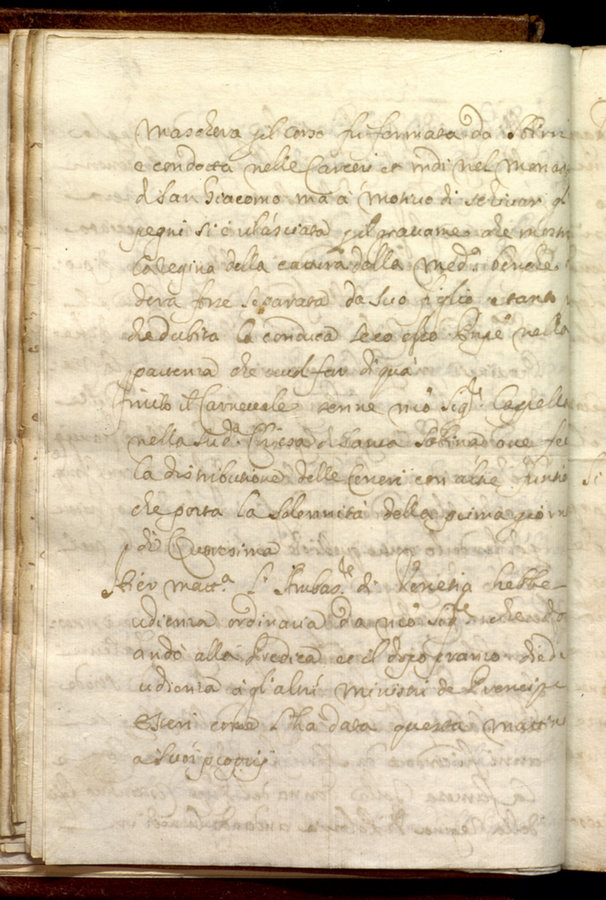 maschera p il corso fu fermata da sbirri
e condotta nelle Carceri et indi nel Monas
di San Giacomo, ma à motivo di schivar gl
pegni si è rilasciata p il gravame che mostra
la Regina della cattura della med.ª benche
deva forse separata da suo figlio e tanto
che dubita la conduca seco esso nella
partenza che vuol far di quà
Finito il Carnevale venne n̄ro Sig.re Cappella
nella sud.ª Chiesa di Santa Sabina doue fec
la distributione delle Ceneri con altre funtio
che porta la solennità della prima giorn
di Quaresima
Hier matt.ª l'Ambas.re di Venetia hebbe
udienza ordinaria da n̄ro Sig.re
andò alla Predica et il dopo pranzo diede
udienza à gl'altri Ministri de Prencipi
esteri come l'ha data questa mattina
a suoi